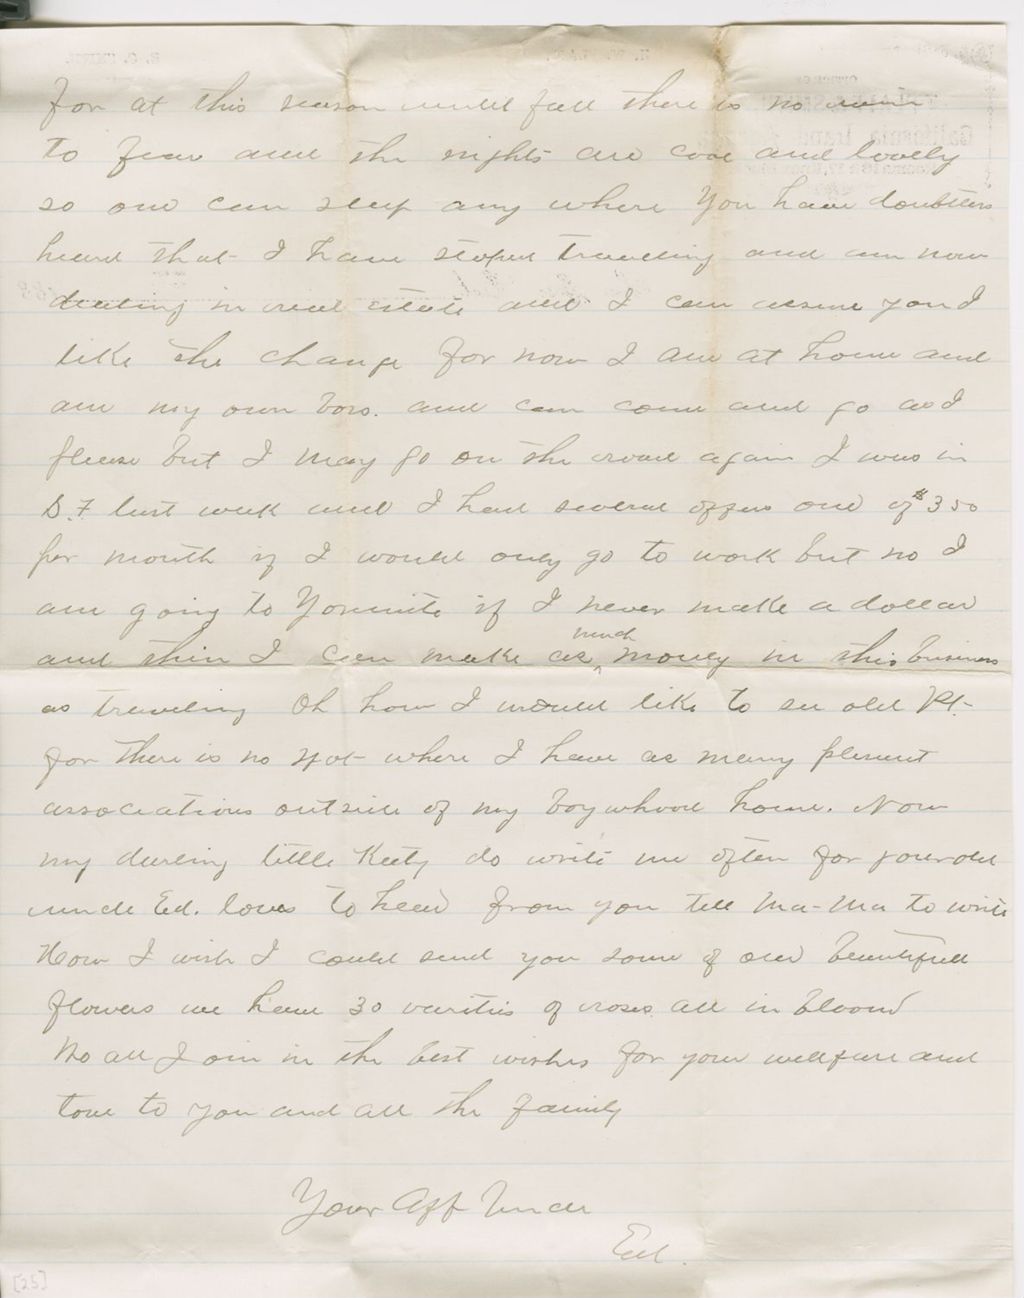 for at this season until fall there is no rain
to fear and the nights are cool and lovely
so one can sleep any where You have doubtless
heard that I have stoped traveling and am now
dealing in real estate and I can assure you I
like the change for now I am at home and
am my own boss. and can come and go as I
please but I may go on the road again I was in
S.F last week and I had several offers one of $350
per month if I would only go to work but no I
am going to Yosmite if I never make a dollar
and then I can make as much money in this business
as traveling Oh how I would like to see old Pt.
for there is no spot where I have as many plesent
associations outside of my boy whood home. Now
my darling little Katy do write me often for your old
uncle Ed. loves to hear from you tell Ma-Ma to write
How I wish I could send you some of our beautifull
flowers we have 30 varities of roses all in bloom
We all Join in the best wishes for your wellfare and
love to you and all the family
Your Aff Uncle
Ed.
[25]